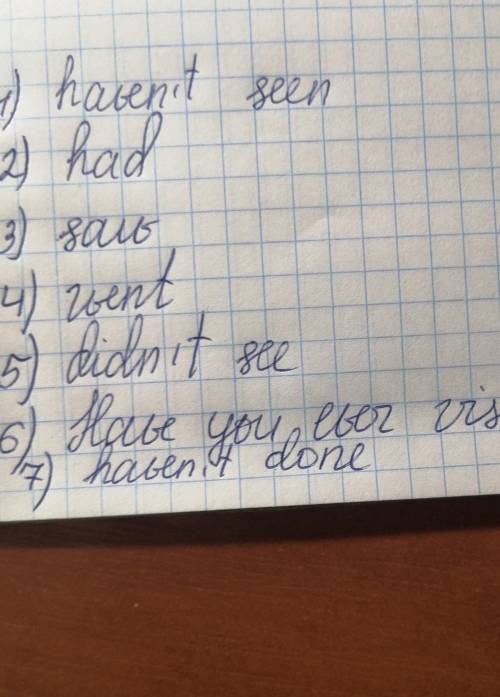 1) haven't seen
2) had
3) saw
4) went
5) didn't see
6) Have you ever vis
7) haven't done